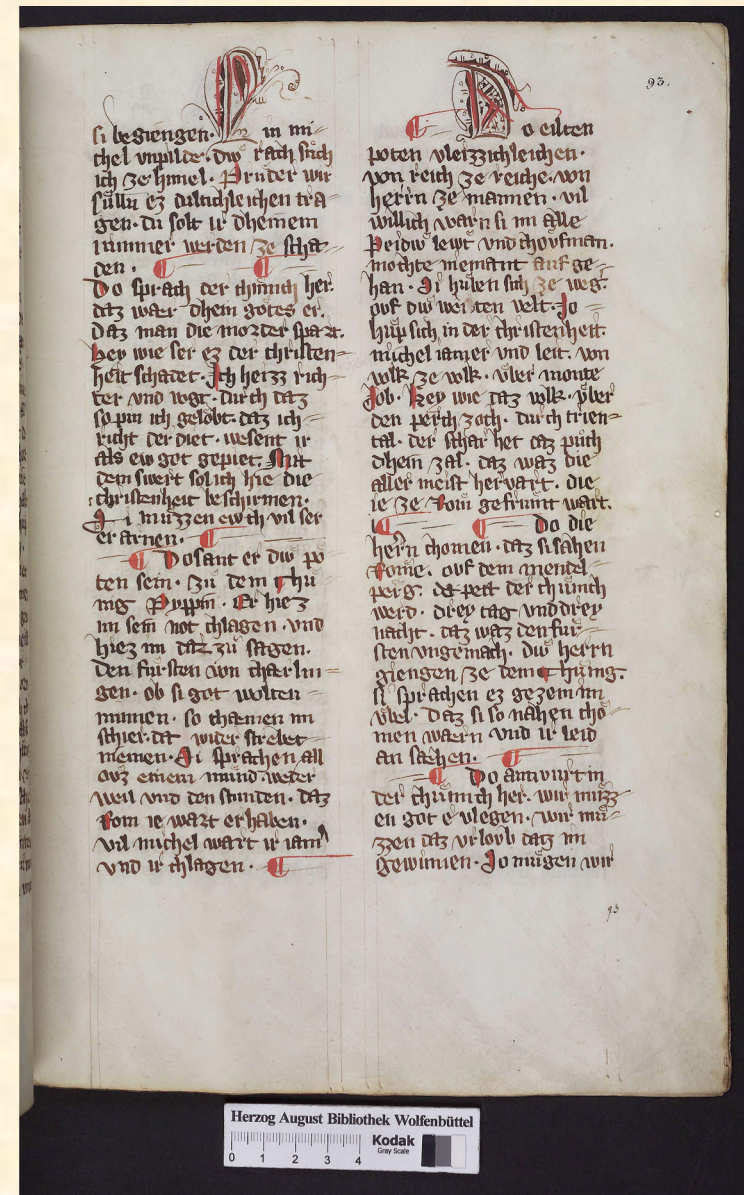 93.
si begiengen. An in mi-
chel vnpilde. diw rach suͦch
ich ze himel. Pruder wir
suͤlln ez dultichleichen tra-
gen. du solt ir dheinem
nimmer werden ze scha-
den.
Do sprach der chunich her.
daz waer dhein gotes er.
Daz man die morder spart.
hey wie ser ez der christen-
heit schadet. Ich heizz rich-
ter vnd vogt. durch daz
so pin ich gelobt. daz ich
richt der diet. wesent ir
als ew got gepiet. Mit
dem swert sol ich hie die
christenheit beschirmen.
Si muͤzzen ewch vil ser
er arnen.
Do sant er diw po
ten sein. zu dem chu
nig Pyppin. Er hiez
im sein not chlagen. vnd
hiez im daz zuͦ sagen.
Den fuͤrsten von charlin-
gen. ob si got wolten
minnen. so chaemen im
schier. da wider strebet
niemen. Si sprachen all
ovz einem mund. weder
weil vnd den stunden. daz
Rom ie wart erhaben.
vil michel wart ir iam
vnd ir chlagen.
Do eilten
poten vleizzichleichen.
von reich ze reiche. von
herrn ze mannen. vil
willich warn si im alle
Peidiw lewt vnd chovfman.
mochte niemant auf ge-
han. Si huͤben sich ze weg.
ovf diw weiten velt. Jo
huͦp sich in der christenheit
michel iamer vnd leit. von
volk ze volk. vber monte
Job. Hey wie daz volk. vber
den perch zoch. durch trien-
tal. der schar het daz puͦch
dhein zal. daz waz die
aller meist hervart. die
ie ze Rom gefrumt wart.
Do die
herrn chomen. daz si sahen
Rome. ovf dem mendel-
perg. da peit der chunich
werd. drey tag vnd drey
nacht. daz waz den fuͤr-
sten vngemach. diw herrn
giengen ze dem chuͤnig.
si sprachen ez gezem im
vbel. daz si so nahen cho-
men waern vnd ir leid
an saehen.
Do antwurt in
der chuͤnich her. wir muͤzz-
en got e vlegen. wir muͤ-
zzen daz vrlovb datz im
gewinnen. Jo muͤgen wir
93
Herzog August Bibliothek Wolfenbüttel
0 1 2 3 4
Kodak
Gray Scale